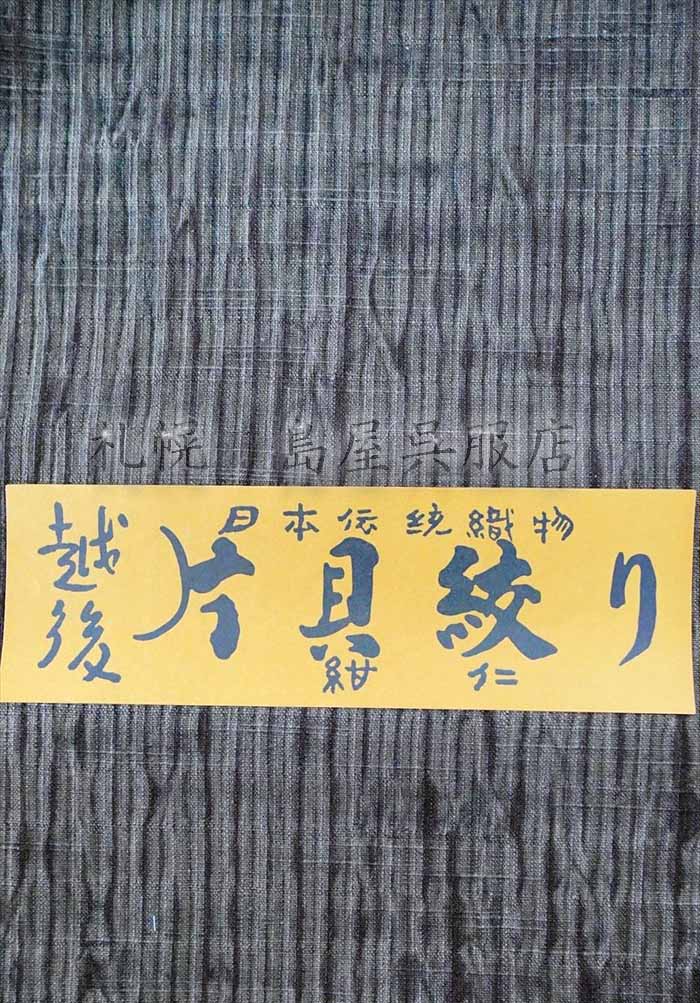 札幌 島屋呉服店
日本伝統織物
越後
片貝絞り
紺仁